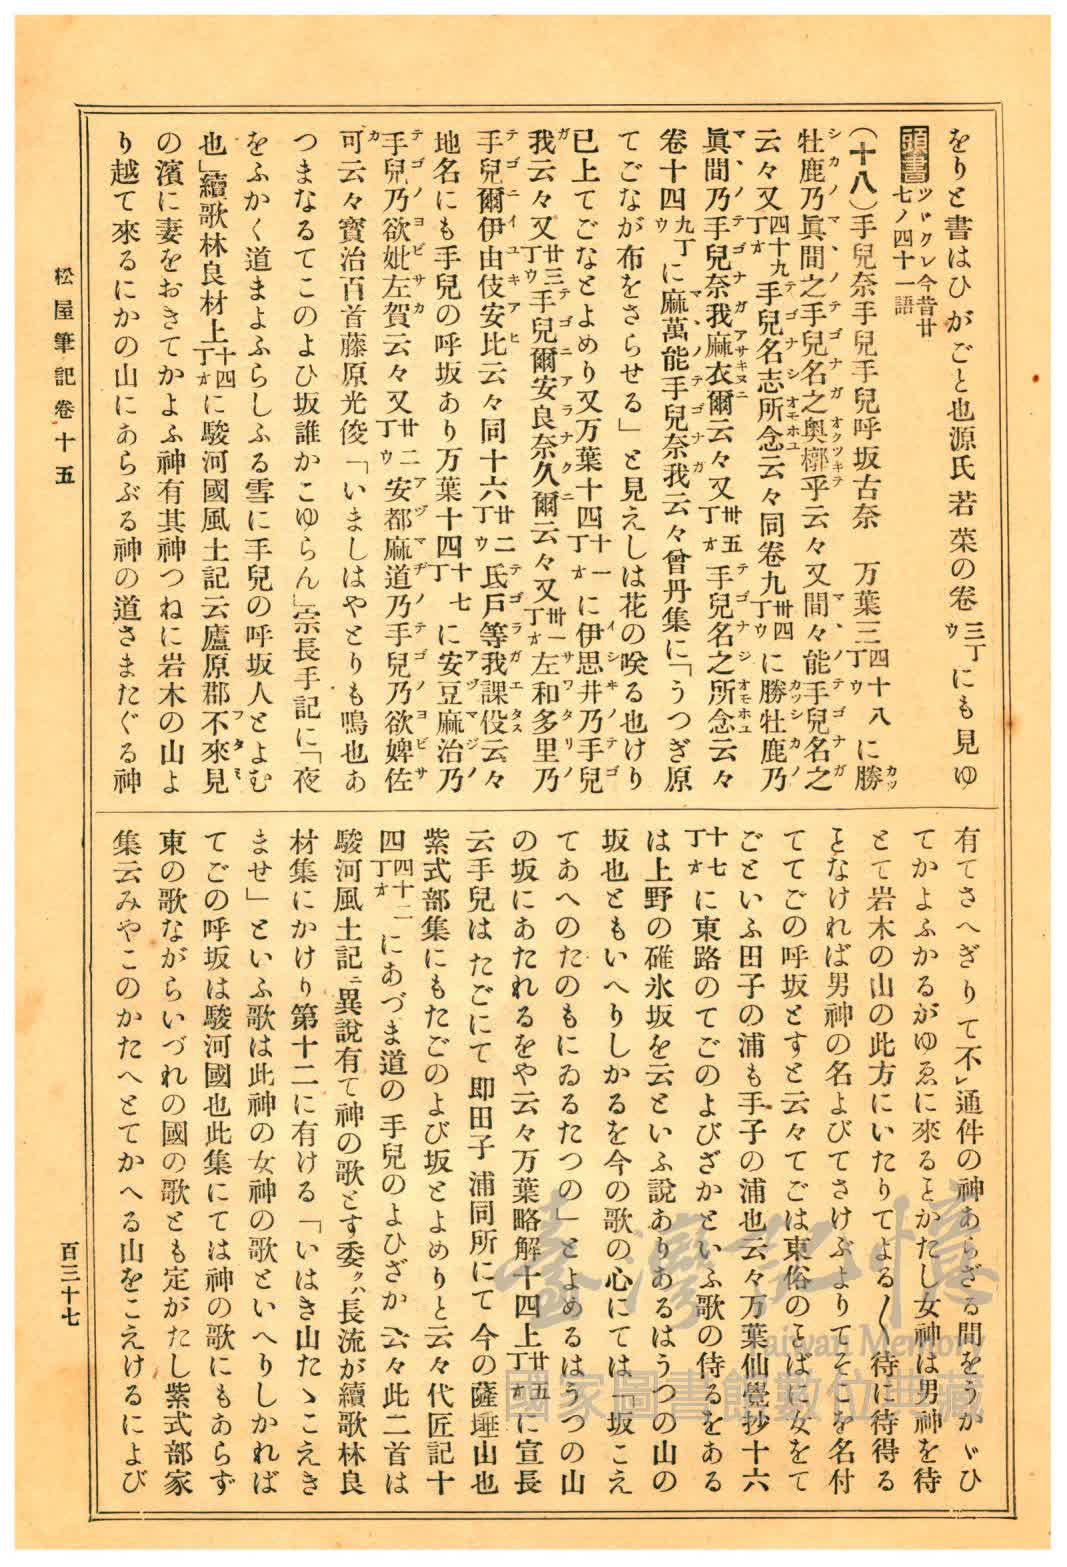 をりと書はひがごと也源氏若菜の卷三丁ウにも見ゆ
頭書 ツヾクレ今昔廿七ノ四十一語
(十八)手兒奈手兒手兒呼坂古奈 万葉三四十八丁ウに勝
牡鹿乃眞間之手兒名之奥槨乎云々又間々能手兒名之
云々又四十九丁オ手兒名志所念云々同卷九卅四丁ウに勝牡鹿乃
眞間乃手兒奈我麻衣爾云々又卅五丁オ手兒名之所念云々
卷十四九丁ウに麻萬能手兒奈我云々曾丹集に「うつぎ原
てごなが布をさらせる」と見えしは花の咲る也けり
已上てごなとよめり又万葉十四十一丁オに伊思井乃手兒
我云々又廿三丁ウ手兒爾安良奈久爾云々又卅一丁オ左和多里乃
手兒爾伊由伎安比云々同十六廿二丁ウ氐戸等我課伇云々
地名にも手兒の呼坂あり万葉十四十七丁に安豆麻治乃
手兒乃欲妣左賀云々又廿二丁ウ安都麻道乃手兒乃欲婢佐
可云々寳治百首藤原光俊「いましはやとりも鳴也あ
つまなるてこのよひ坂誰かこゆらん」宗長手記に「夜
をふかく道まよふらしふる雪に手兒の呼坂人とよむ
也」續歌林良材上十四丁オに駿河國風土記云廬原郡不來見
の濱に妻をおきてかよふ神有其神つねに岩木の山よ
り越て來るにかの山にあらぶる神の道さまたぐる神
有てさへぎりて不レ通件の神あらざる間をうかゞひ
てかよふかるがゆゑに來るヿかたし女神は男神を待
とて岩木の山の此方にいたりてよる〱待に待得る
ヿなければ男神の名よびてさけぶよりてそこを名付
ててごの呼坂とすと云々てごは東俗のことばに女をて
ごといふ田子の浦も手子の浦也云々万葉仙覺抄十六
十七丁オに東路のてごのよびざかといふ歌の侍るをある
は上野の碓氷坂を云といふ説ありあるはうつの山の
坂也ともいへりしかるを今の歌の心にては「坂こえ
てあへのたのもにゐるたつの」とよめるはうつの山
の坂にあたれるをや云々万葉略解十四上廿五丁オに宣長
云手兒はたごにて即田子浦同所にて今の薩埵山也
紫式部集にもたごのよび坂とよめりと云々代匠記十
四四十二丁オにあづま道の手兒のよひざか云々此二首は
駿河風土記ニ異説有て神の歌とす委クハ長流が續歌林良
材集にかけり第十二に有ける「いはき山たゝこえき
ませ」といふ歌は此神の女神の歌といへりしかれば
てごの呼坂は駿河國也此集にては神の歌にもあらず
東の歌ながらいづれの國の歌とも定がたし紫式部家
集云みやこのかたへとてかへる山をこえけるによび
松屋筆記卷十五
百三十七
臺灣記憶
Taiwan Memory
國家圖書館數位典藏